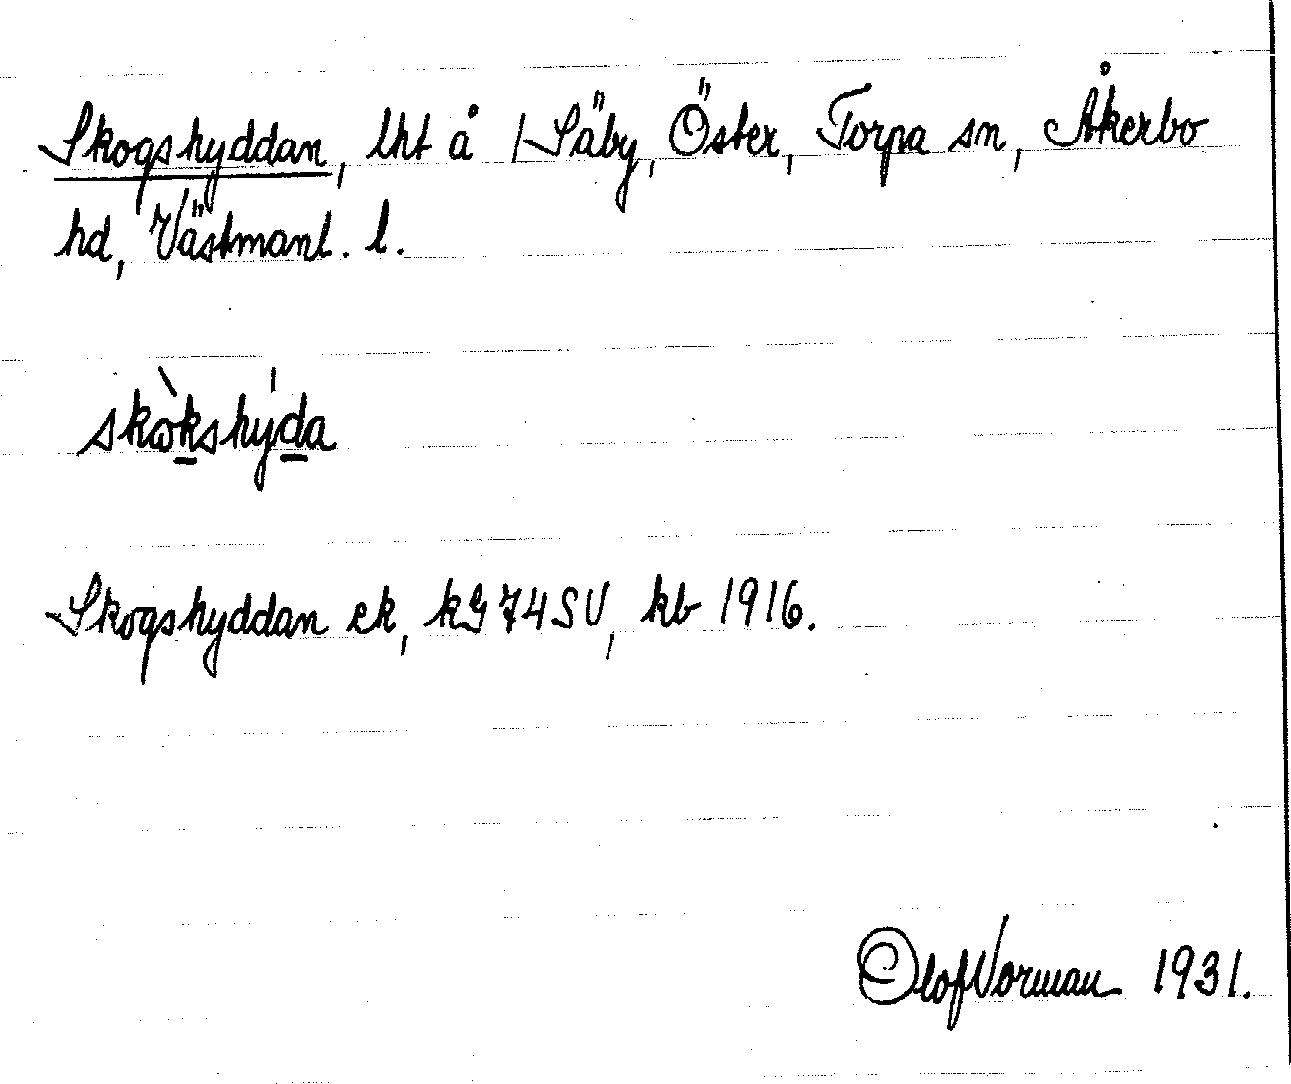 Skogshyddan, lht å /Säby, Öster, Torpa sn, Åkerbo
hd, Västmanl. l.
skòkshýda
Skogshyddan ek, kG74SV, kb 1916.
Olof Norman 1931.